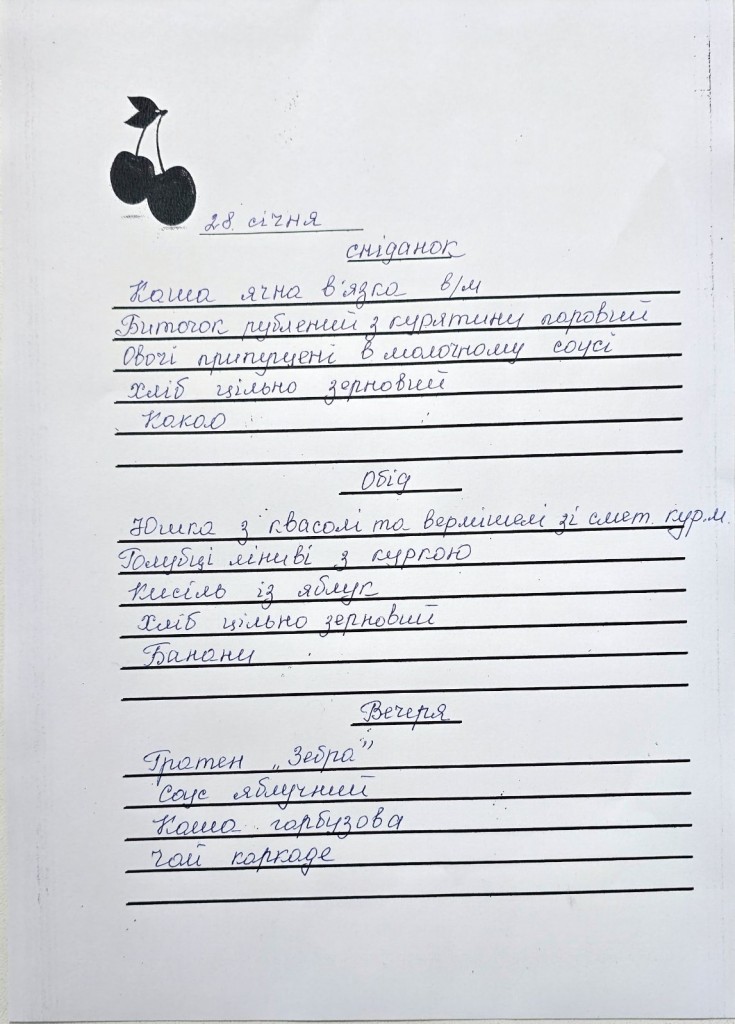 28. січня
сніданок
Каша ячна в'язка в/м
Биточок рублений з курятини паровий
Овочі припущені в молочному соусі
Хліб цільно зерновий
Какао
Обід
Юшка з квасолі та вермішелі зі смет. кур.м.
Голубці ліниві з куркою
Кисіль із яблук
Хліб цільно зерновий
Банани
Вечеря
Гратен „Зебра"
Соус яблучний
Каша гарбузова
Чай каркаде